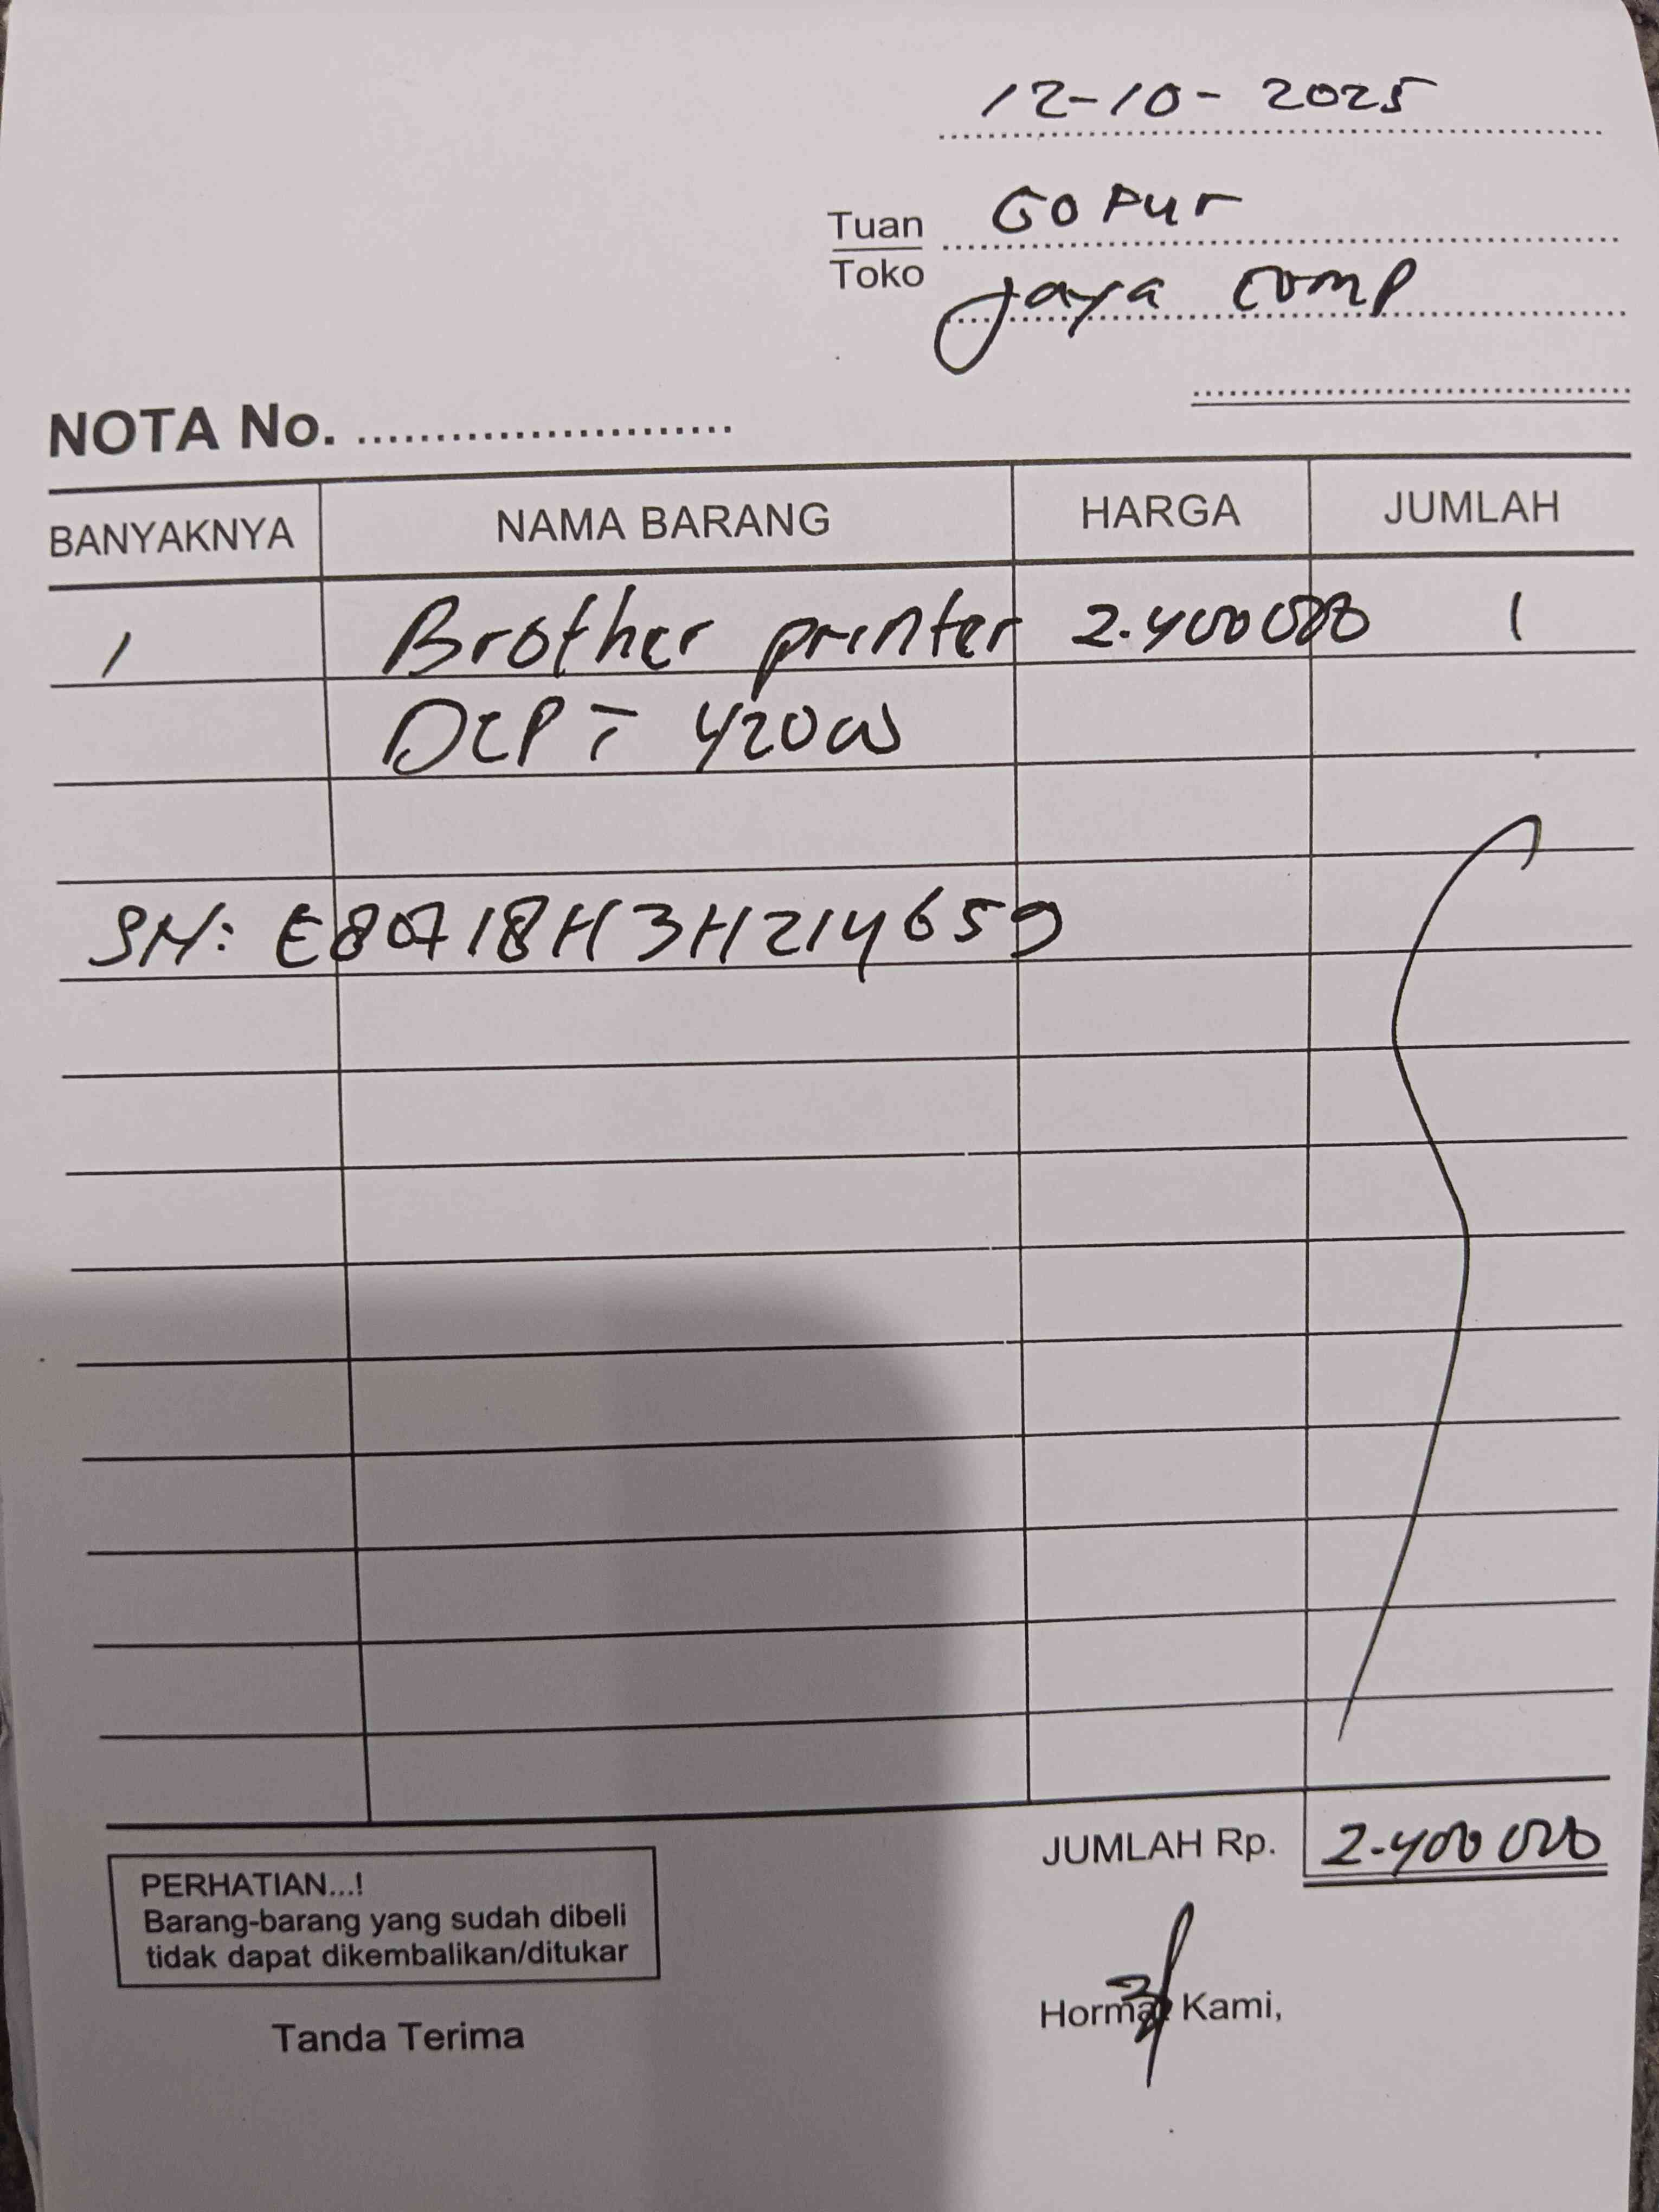 12-10-2025
Tuan Gopur
Toko Jaya comp
NOTA No.
BANYAKNYA NAMA BARANG HARGA JUMLAH
1 Brother printer 2.400000 1
DCP T 420W
SN: E80718H3H214659
JUMLAH Rp. 2.400 000
PERHATIAN...!
Barang-barang yang sudah dibeli
tidak dapat dikembalikan/ditukar
Tanda Terima
Hormat Kami,